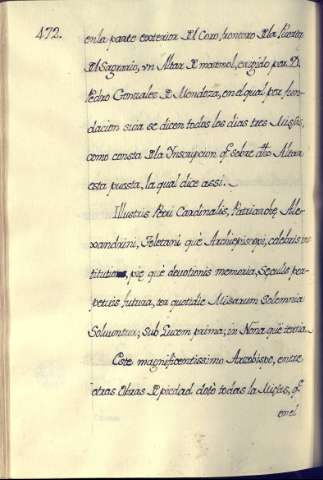 472.
en la parte exsterior del Coro, frontero de la Puerta
del Sagrario, vn Altar de marmol, erigido por D.
Pedro Gonzales de Mendoza, en el qual por fun
dacion suia se dicen todos los dias tres Missas,
como consta de la Ynscripcion q̃ sobre dho Altar
esta puesta, la qual dice assi.
Illustris Petri Cardinalis, Patriarchę, Ale-
xandrini, Toletani què Archiepiscopi, celebris ins
titutione, pię què devotionis memoria, Seculis per
petuis futura, ter quotidie Missarum Solemnia
Soluuntur, sub Lucem prima; in Nona què tertia.
Este magnificentissimo Arzobispo, entre
otras Obras de piedad dotò todas la Missas, q̃
en el